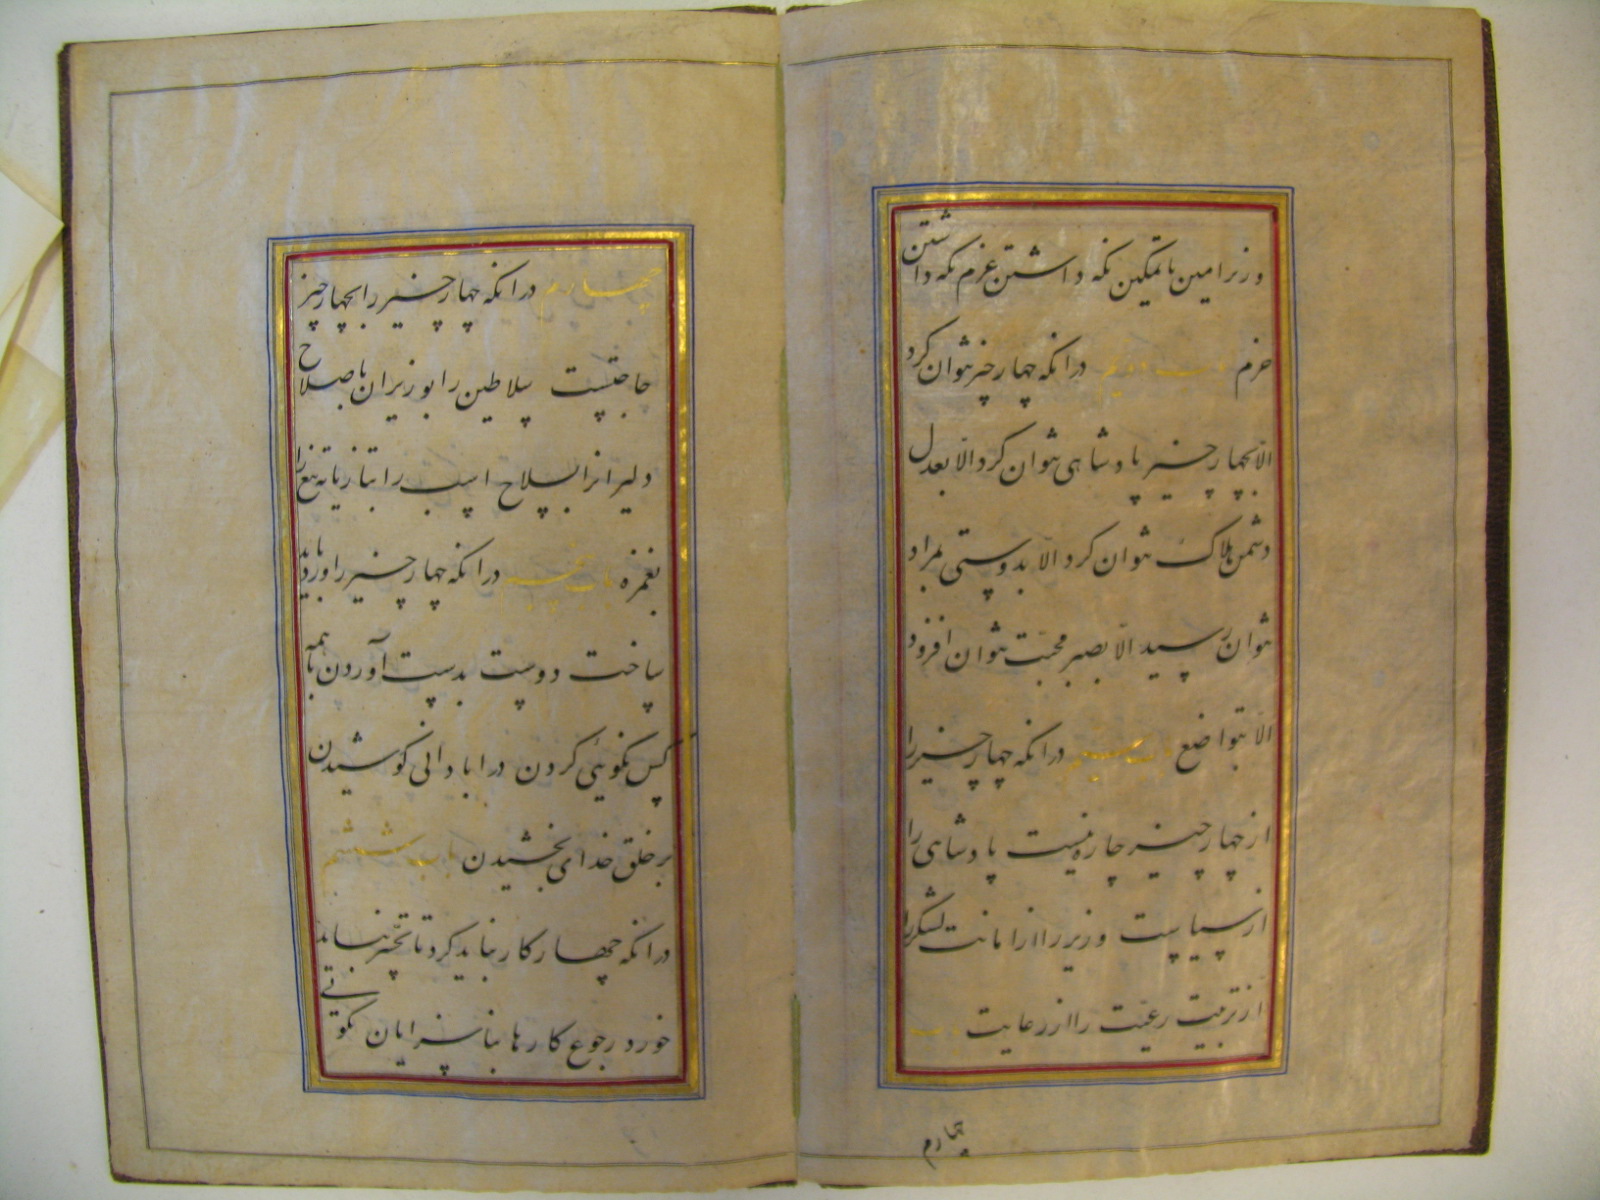 وزیر امین با تمکین نکه داشتن عزم نکه داشتن
حزم باب دویم در انکه چهار چیز نتوان کرد
الا بچهار چیز پادشاهی نتوان کرد الا بعدل
دشمن هلاک نتوان کرد الا بدوستی بمراد
نتوان رسید الا بصبر محبت نتوان افزود
الا بتواضع باب سیم در انکه چهار چیز را
از چهار چیز چاره نیست پادشاهی را
از سیاست وزیر را از امانت لشکر را
از تربیت رعیت را از رعایت باب
چهارم
چهارم در انکه چهار چیز را بچهار چیز
حاجتست سلاطین را بوزیران با صلاح
دلیرانرا بسلاح اسب را بتازیانه تیغ را
بغمزه باب پنجم در انکه چهار چیز را ورد باید
ساخت دوست بدست آوردن با همه
کس نکوئی کردن در ابادانی کوشیدن
بر خلق خدای بخشیدن باب ششم
در انکه چهار کار نباید کرد تا تحیر نباید
خورد رجوع کارها بناسزایان نکوئی